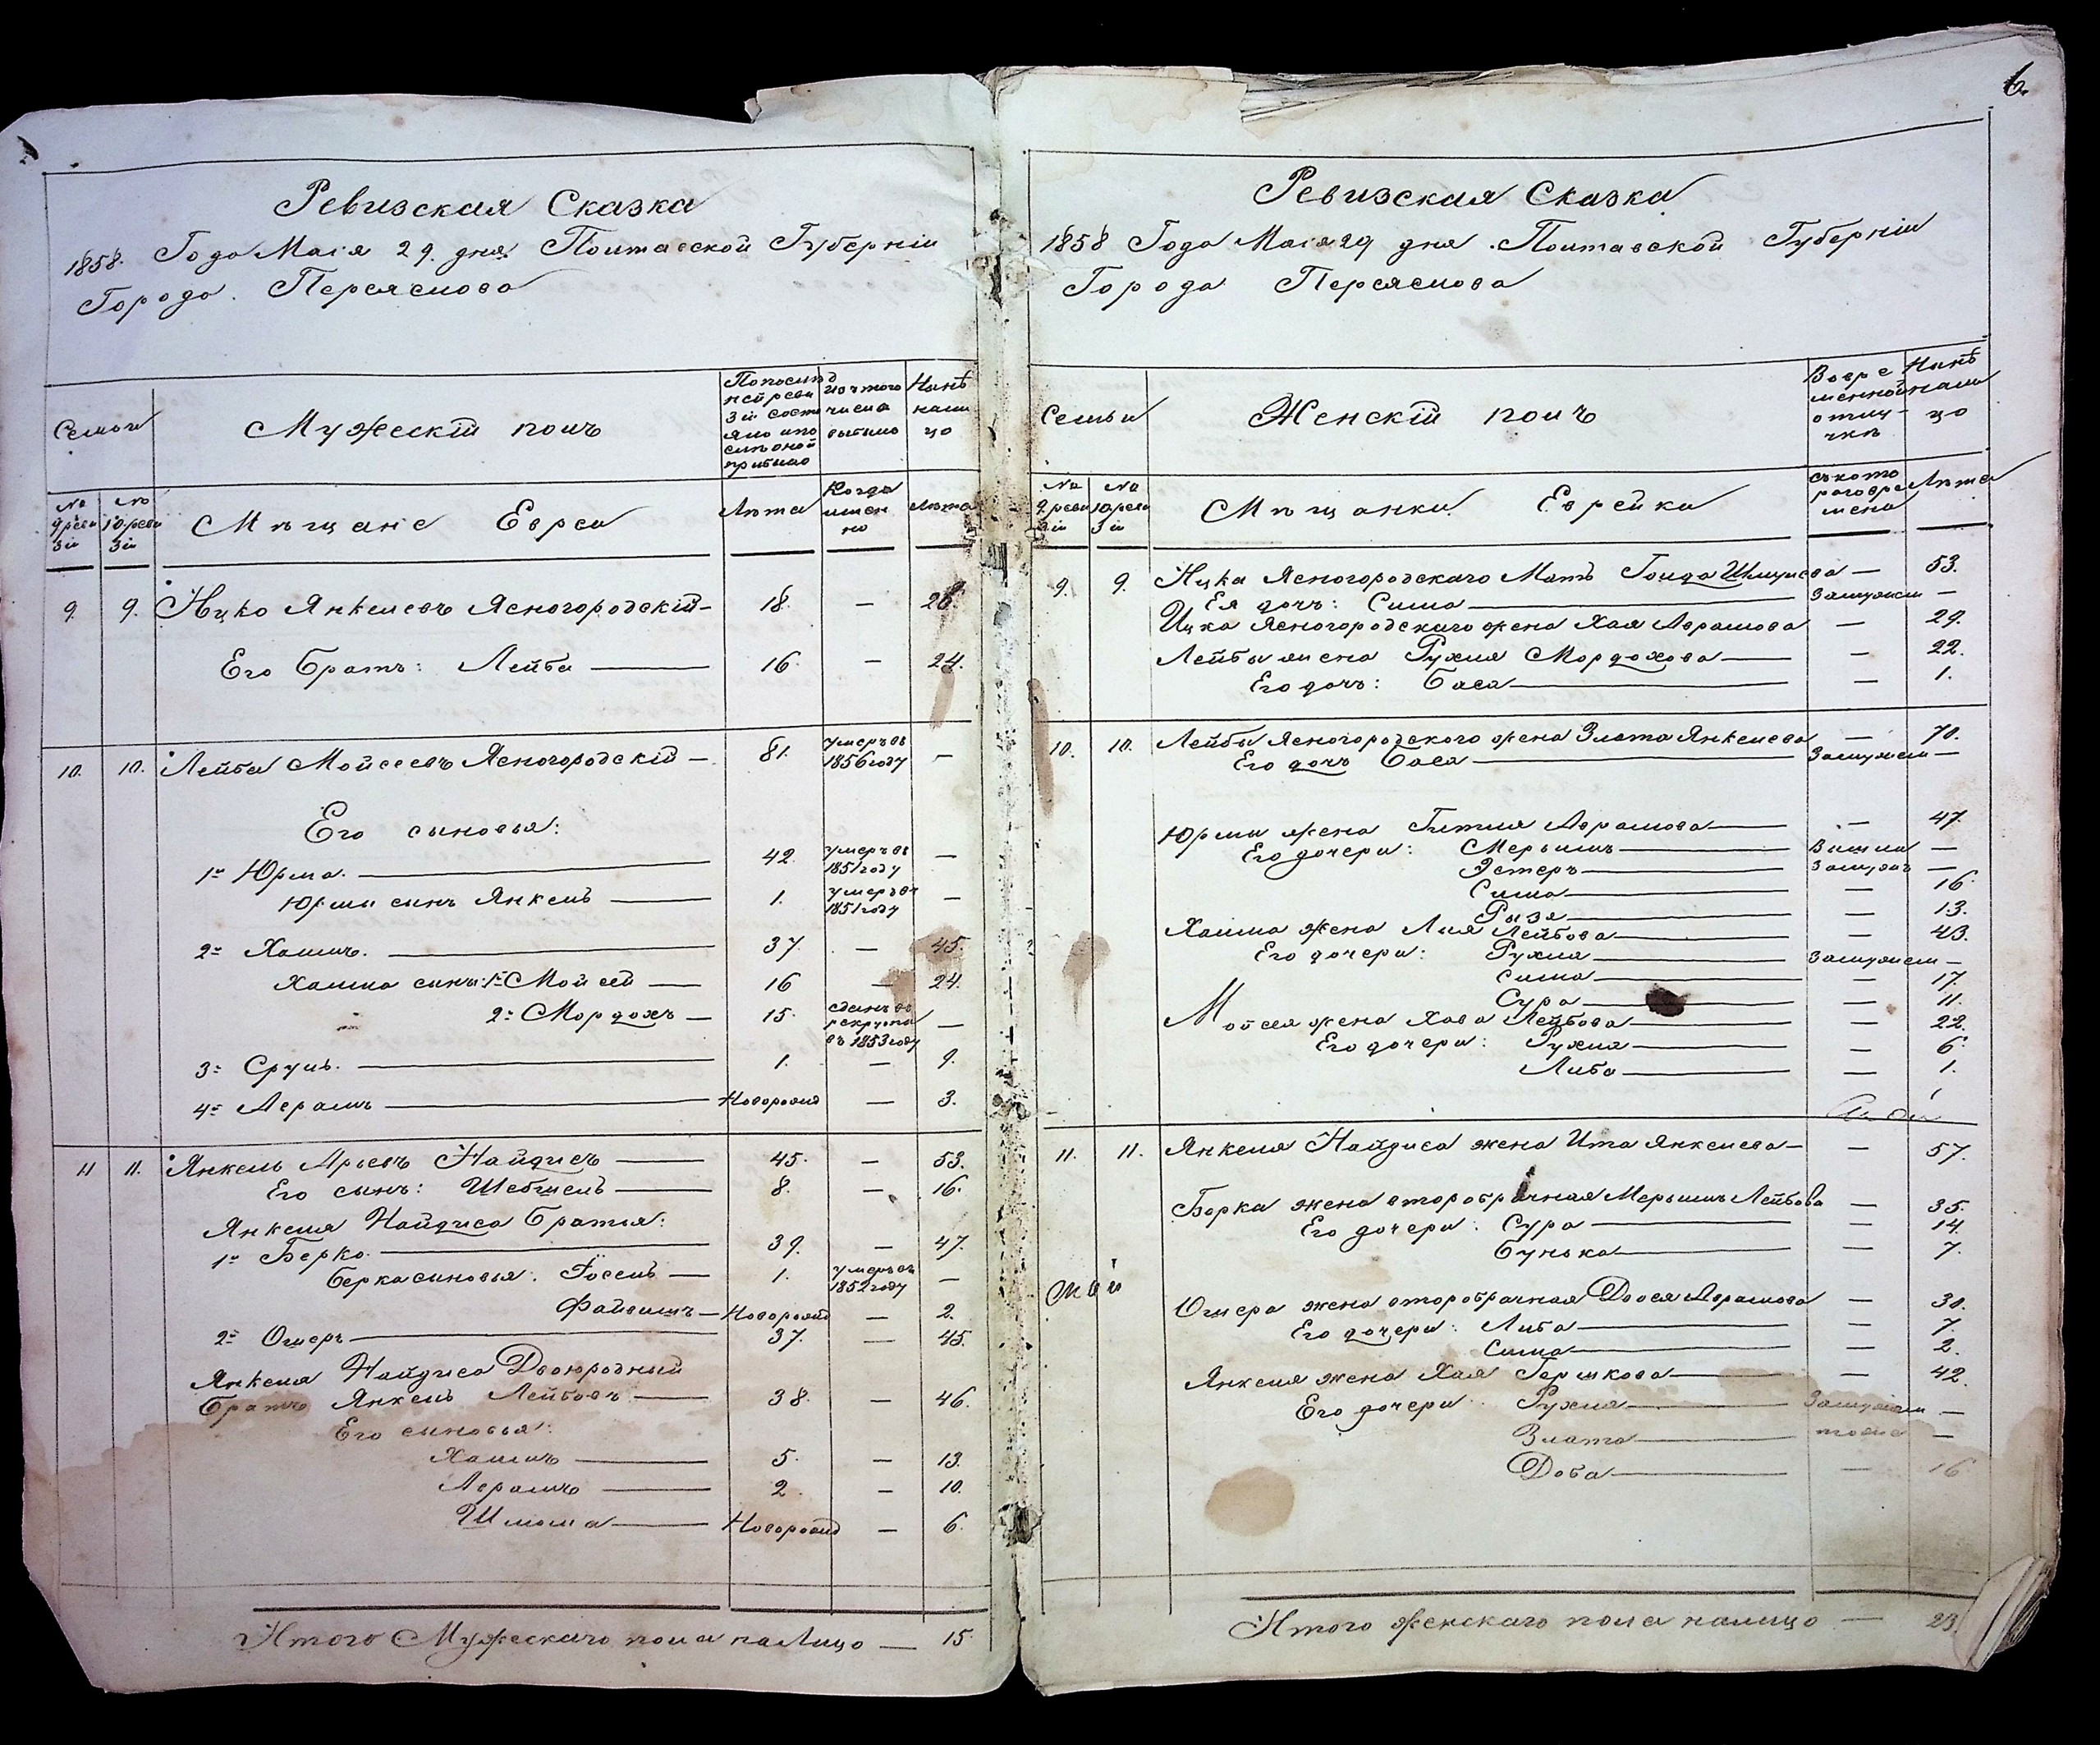 Ревизская Сказка
1858. Года Маія 29. дня. Полтавской Губерніи
Города. Переяслова
Семьи
Мужескій полъ
По послѣд
ней реви
зіи состо
яло и по
слѣ оной
прибыло
Изъ того
числа
выбыло
Нынѣ
нали
цо
№
9 реви
зіи
№
10 реви
зіи
Мѣщане Евреи
Лѣта
Когда
имен
но
Лѣта
9. 9. Ицко Янкелевъ Ясногородскій — 18. — 26.
Его братъ: Лейба — 16. — 24.
10. 10. Лейба Мойсеевъ Ясногородскій — 81. умеръ въ 1856 году —
Его сыновья:
1й Юрма. — 42. умеръ въ 1851 году —
Юрмы сынъ Янкель — 1. умеръ въ 1851 году —
2й Хаимъ. — 37. — 45.
Хаима сыны: 1й Мойсей — 16 — 24.
2й Мордохъ — 15. сданъ въ рекруты въ 1853 году —
3й Сруль. — 1. — 9.
4й Аврамъ — Новорожд — 3.
11 11. Янкель Арьевъ Найдисъ — 45. — 53.
Его сынъ: Шевшель — 8. — 16.
Янкеля Найдиса братья:
1й Берко. — 39. — 47.
Берка сыновья: Іосель — 1. умеръ въ 1852 году —
Файвишъ — Новорожд — 2.
2й Ошеръ — 37. — 45.
Янкеля Найдиса Двоюродный
братъ Янкель Лейбовъ — 38. — 46.
Его сыновья:
Хаимъ — 5. — 13.
Аврамъ — 2 — 10.
Шлиома — Новорожд — 6.
Итого Мужескаго пола налицо — 15.
6.
Ревизская Сказка
1858 Года Маія 29 дня. Полтавской Губерніи
Города Переяслова
Семьи
Женскій полъ
Во вре
менной
отлу-
чкѣ
Нынѣ
нали
цо
№
9 реви
зіи
№
10 реви
зіи
Мѣщанки Еврейки
съ кото
раго вре
мени
Лѣта
9. 9. Ицка Ясногородскаго Мать Голда Шлиумова — 53.
Ея дочь: Сима — Замужем —
Ицка Ясногородскаго жена Хая Аврамова — 29.
Лейбы жена Рухля Мордохова — — 22.
Его дочь: Бася — — 1.
10. 10. Лейбы Ясногородскаго жена Злата Янкелева — 70.
Его дочь Бася — Замужем —
Юрмы жена Гитля Аврамова — — 47.
Его дочери: Мерьямъ — Вышла —
Эстеръ — Замужъ —
Сима — — 16.
Рызя — — 13.
Хаима жена Лия Лейбова — — 43.
Его дочери: Рухля — Замужем —
Сима — — 17.
Сура — — 11.
Мойсея жена Хава Лейбова — — 22.
Его дочери: Рухля — — 6.
Либа — — 1.
11. 11. Янкеля Найдиса жена Ита Янкелева — — 57.
Берка жена второбрачная Мерьямъ Лейбова — 35.
Его дочери: Сура — — 14.
Бунька — — 7.
Ошера жена второбрачная Двося Аврамова — 30.
Его дочери: Либа — — 7.
Сима — — 2.
Янкеля жена Хая Гершкова — — 42.
Его дочери: Рухля — Замужем —
Злата — тоже —
Доба — — 16
Итого женскаго пола налицо — 23.